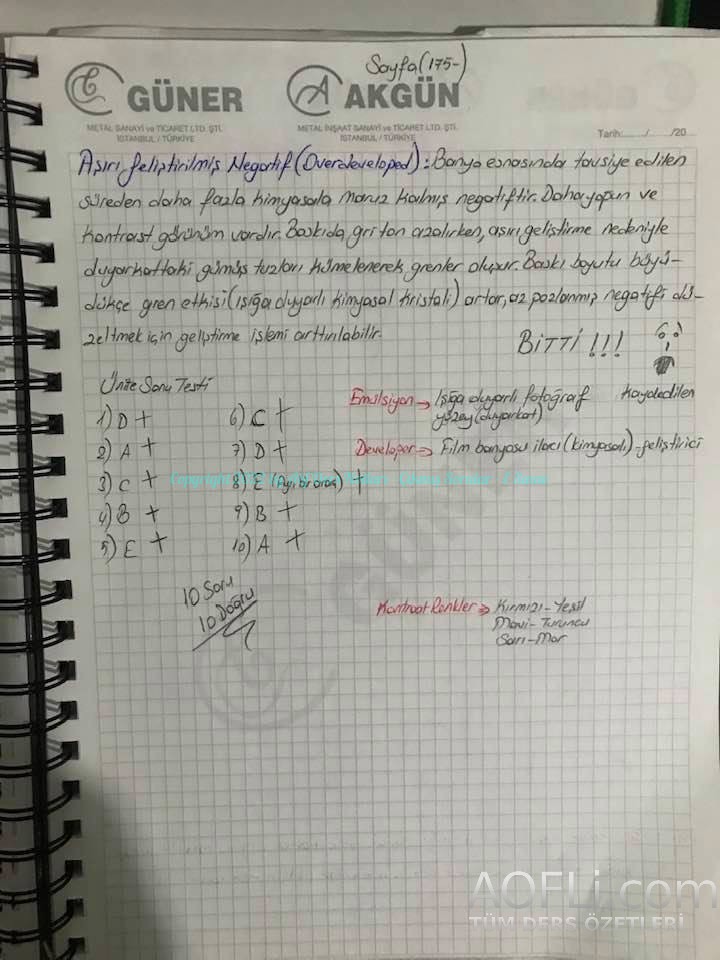 Sayfa (175-)
GÜNER
METAL SANAYİ ve TİCARET LTD. ŞTİ.
İSTANBUL / TÜRKİYE
AKGÜN
METAL İNŞAAT SANAYİ ve TİCARET LTD. ŞTİ.
İSTANBUL / TÜRKİYE
Tarih:....../....../20
Aşırı geliştirilmiş Negatif (Overdeveloped): Banyo esnasında tavsiye edilen
süreden daha fazla kimyasala maruz kalmış negatiftir. Daha yoğun ve
kontrast görünüm vardır. Baskıda, gri ton azalırken, aşırı geliştirme nedeniyle
duyarkattaki gümüş tuzları kümelenerek grenler oluşur. Baskı boyutu büyü-
dükçe gren etkisi (ışığa duyarlı kimyasal kristali) artar, az pozlanmış negatifi dü-
zeltmek için geliştirme işlemi arttırılabilir.
BİTTİ !!!
Ünite Sonu Testi
1) D +
2) A +
3) C +
4) B +
5) E +
6) C +
7) D +
8) E (Ayrı bir araç) +
9) B +
10) A +
10 Soru
10 Doğru
Emülsiyon → Işığa duyarlı fotoğraf kaydedilen
yüzey (duyarkat)
Developer → Film banyosu ilacı (kimyasalı) - geliştirici
Kontrast Renkler → Kırmızı - Yeşil
Mavi - Turuncu
Sarı - Mor
AOFLi.com
TÜM DERS ÖZETLERİ